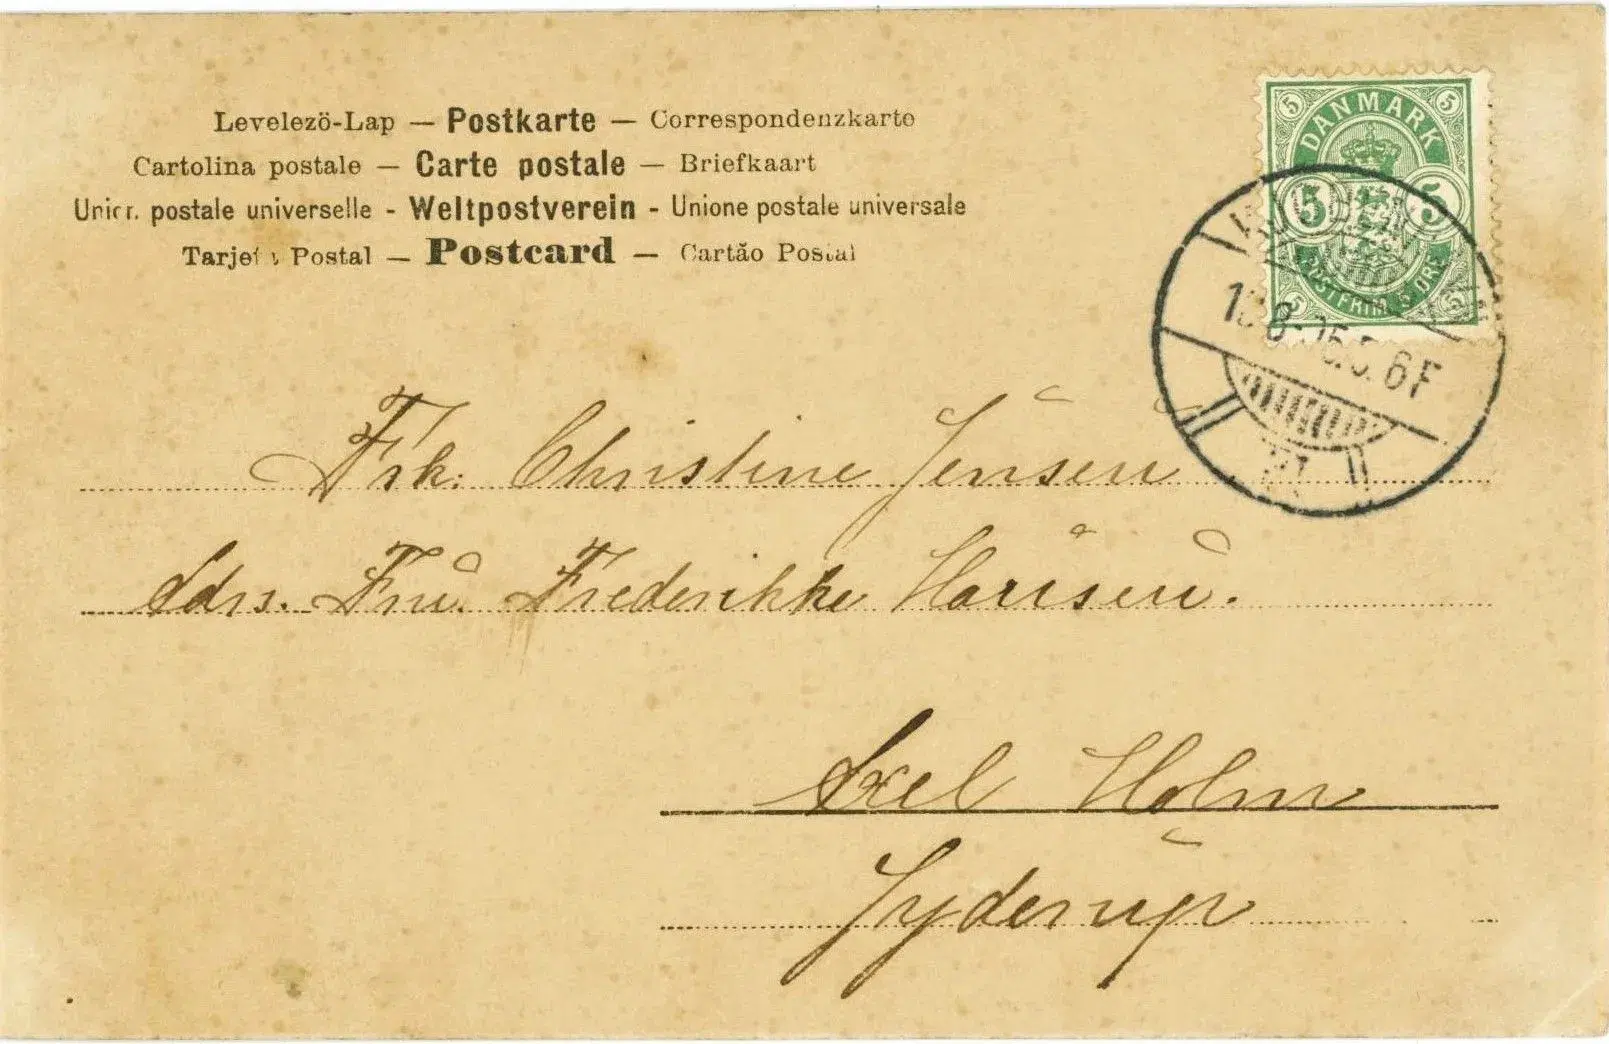 Levelezö-Lap — Postkarte — Correspondenzkarte
Cartolina postale — Carte postale — Briefkaart
postale universelle - Weltpostverein - Unione postale universale
Postal — Postcard — Cartão Postal
5 DANMARK 5
5 5
POSTFRIM. 5 ØRE
5 5
6F
Frk: Christine Jensen
Adrs. Fru. Frederikke Hansen.
Axel Holm
Jyderup